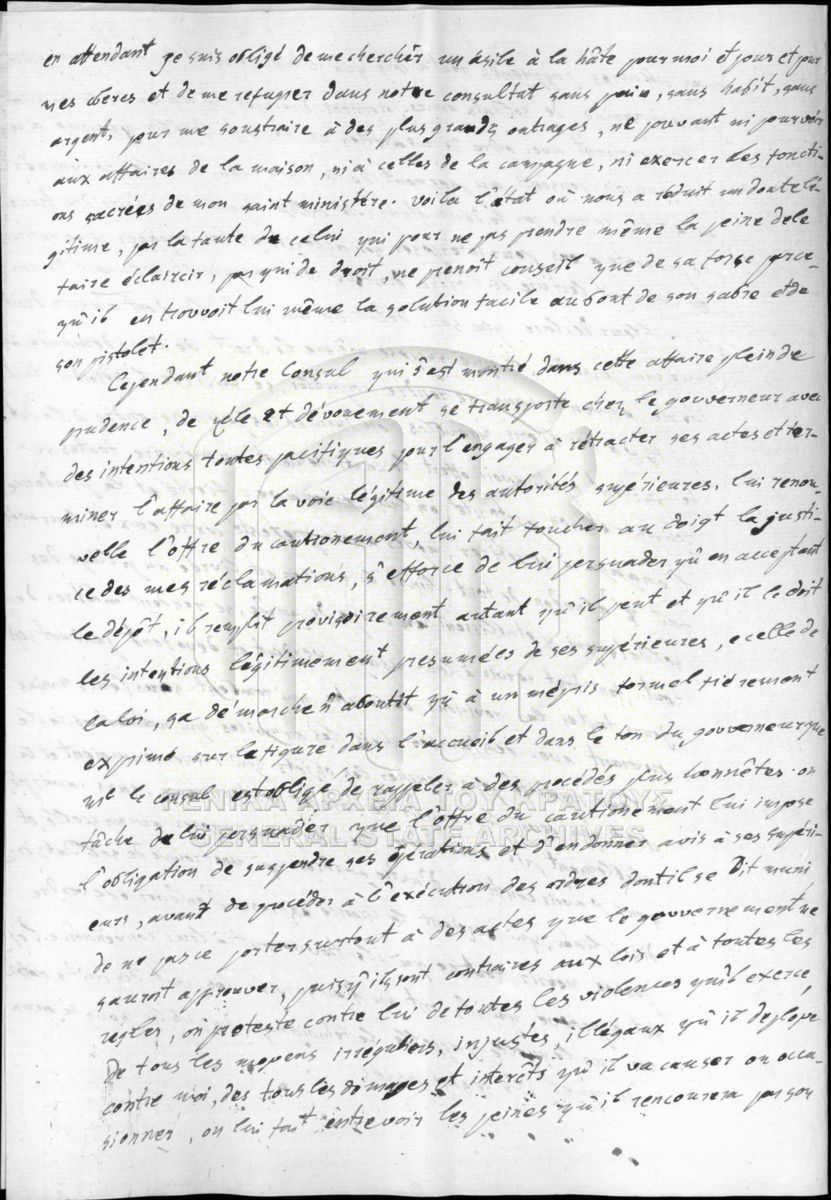 en attendant je suis obligé de me chercher un asile à la hâte pour moi et pour et pour
mes cheres et de me refugier dans notre consultat sans pain, sans habit, sans
argent, pour me soustraire à des plus grands outrages, ne pouvant ni pourvoir
aux affaires de la maison, ni à celles de la campagne, ni exercer les foncti-
ons sacrées de mon saint ministére. voila l'état où nous a réduit un doute lé-
gitime, par la faute de celui qui pour ne pas prendre même la peine de le
faire éclaircir, par qui de droit, ne prenoit conseil que de sa force parce-
qu'il en trouvoit lui même la solution facile au bout de son sabre et de
son pistolet.
Cependant notre Consul qui s'est montré dans cette affaire plein de
prudence, de zéle et dévouement se transporte chez le gouverneur avec
des intentions toutes pacifiques pour l'engager à rétracter ses actes et ter-
miner l'affaire par la voie légitime des autorités supérieures. lui renou-
velle l'offre du cautionement, lui fait toucher au doigt la justi-
ce des mes réclamations, s'efforce de lui persuader qu'en acceptant
le dépôt, il remplit provisoirement autant qu'il peut et qu'il le doit
les intentions légitimement presumées de ses supérieures, e celle de
la loi, sa démarche n'aboutit qu'à un mépris formel fierement
exprimé sur la figure dans l'accueil et dans le ton du gouverneur que
mr le consul est obligé de rappeler à des procédés plus honnêtes. on
tâche de lui persuader que l'offre du cautionement lui impose
l'obligation de suspendre ses opérations et d'en donner avis à ses supéri-
eurs, avant de procéder à l'exécution des ordres dont il se dit muni
de ne pas se porter surtout à des actes que le gouvernement ne
sauroit approuver, puisqu'ils sont contraires aux lois et à toutes les
regles, on proteste contre lui de toutes les violences qu'il exerce,
De tous les moyens irréguliers, injustes, illégaux qu'il deploye
contre moi, des tous les domages et interêts qu'il va causer ou occa-
sionner, on lui fait entrevoir les peines qu'il rencourera par son
ΓΕΝΙΚΑ ΑΡΧΕΙΑ ΤΟΥ ΚΡΑΤΟΥΣ
GENERAL STATE ARCHIVES